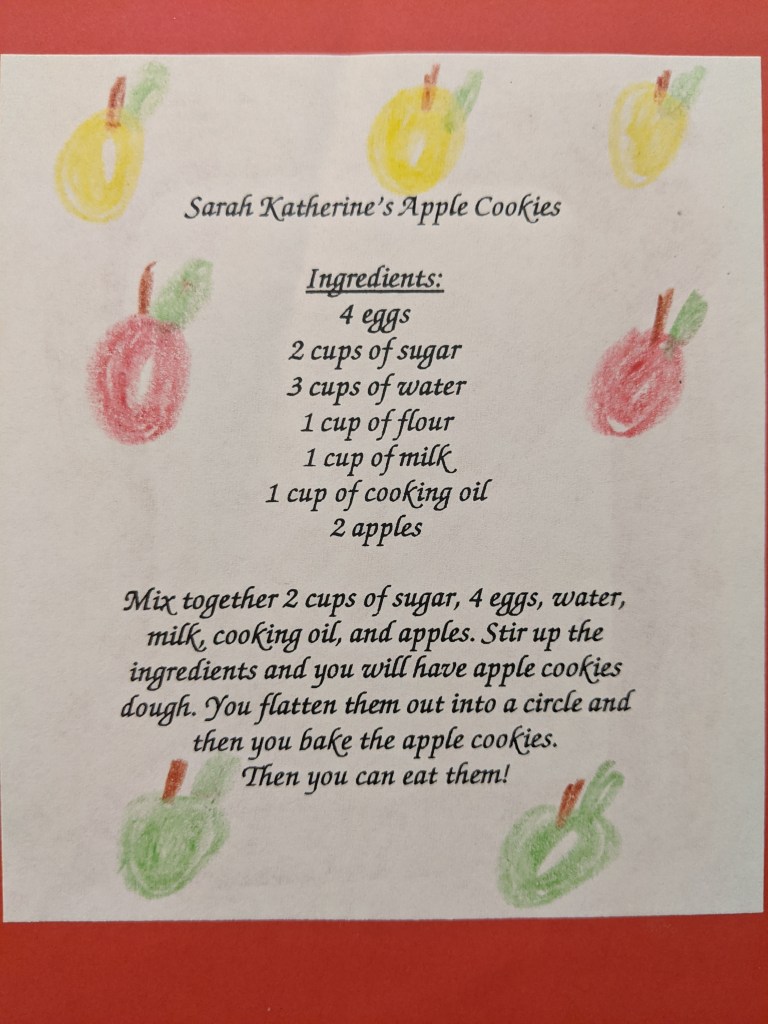 Sarah Katherine's Apple Cookies
Ingredients:
4 eggs
2 cups of sugar
3 cups of water
1 cup of flour
1 cup of milk
1 cup of cooking oil
2 apples
Mix together 2 cups of sugar, 4 eggs, water,
milk, cooking oil, and apples. Stir up the
ingredients and you will have apple cookies
dough. You flatten them out into a circle and
then you bake the apple cookies.
Then you can eat them!